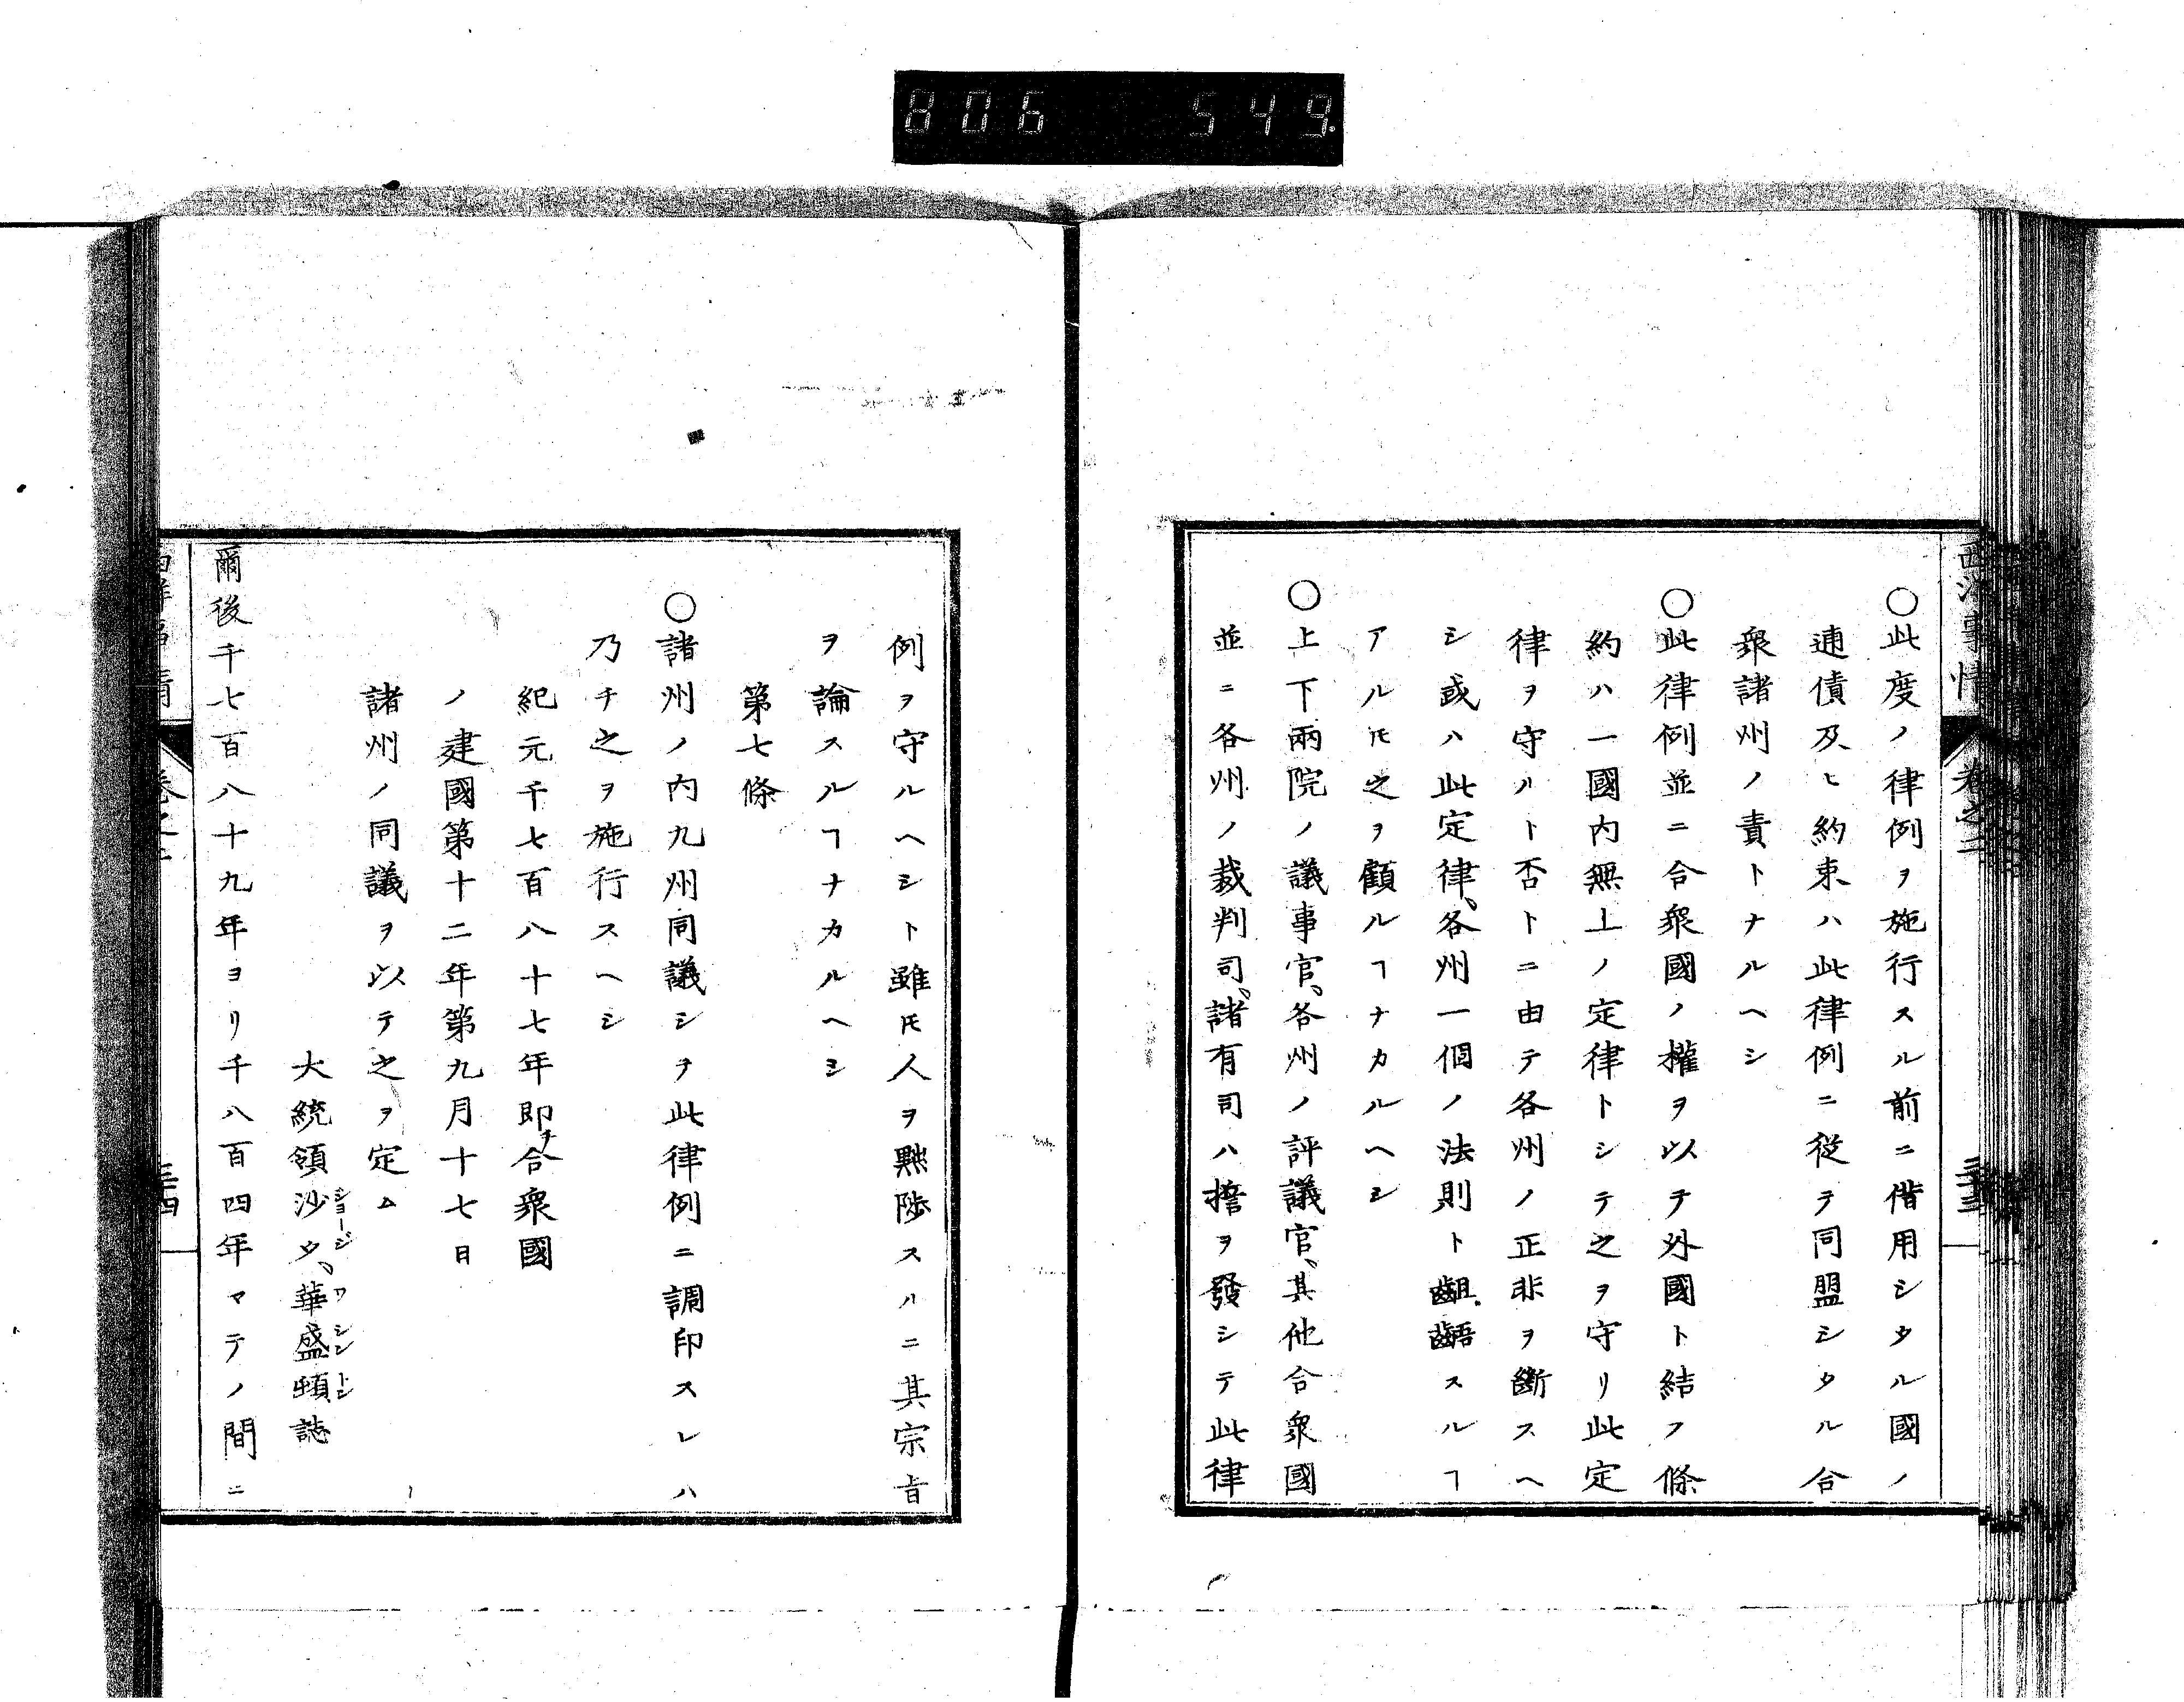 806 549.
西洋事情
卷之二
三十三
○此度ノ律例ヲ施行スル前ニ借用シタル國ノ
逋債及ヒ約束ハ此律例ニ從テ同盟シタル合
衆諸州ノ責トナルヘシ
○此律例並ニ合衆國ノ權ヲ以テ外國ト結フ條
約ハ一國内無上ノ定律トシテ之ヲ守リ此定
律ヲ守ルト否トニ由テ各州ノ正非ヲ斷スヘ
シ或ハ此定律、各州一個ノ法則ト齟齬スルヿ
アルモ之ヲ顧ルヿナカルヘシ
○上下兩院ノ議事官、各州ノ評議官、其他合衆國
並ニ各州ノ裁判司、諸有司ハ誓ヲ發シテ此律
例ヲ守ルヘシト雖𪜈人ヲ黜陟スルニ其宗旨
ヲ論スルヿナカルヘシ
第七條
○諸州ノ内九州同議シテ此律例ニ調印スレハ
乃チ之ヲ施行スヘシ
紀元千七百八十七年即チ合衆國
ノ建國第十二年第九月十七日
諸州ノ同議ヲ以テ之ヲ定ム
大統領沙タ、華盛頓誌
ショージ、ワシントン
爾後千七百八十九年ヨリ千八百四年マテノ間ニ
西洋事情
卷之二
三十四